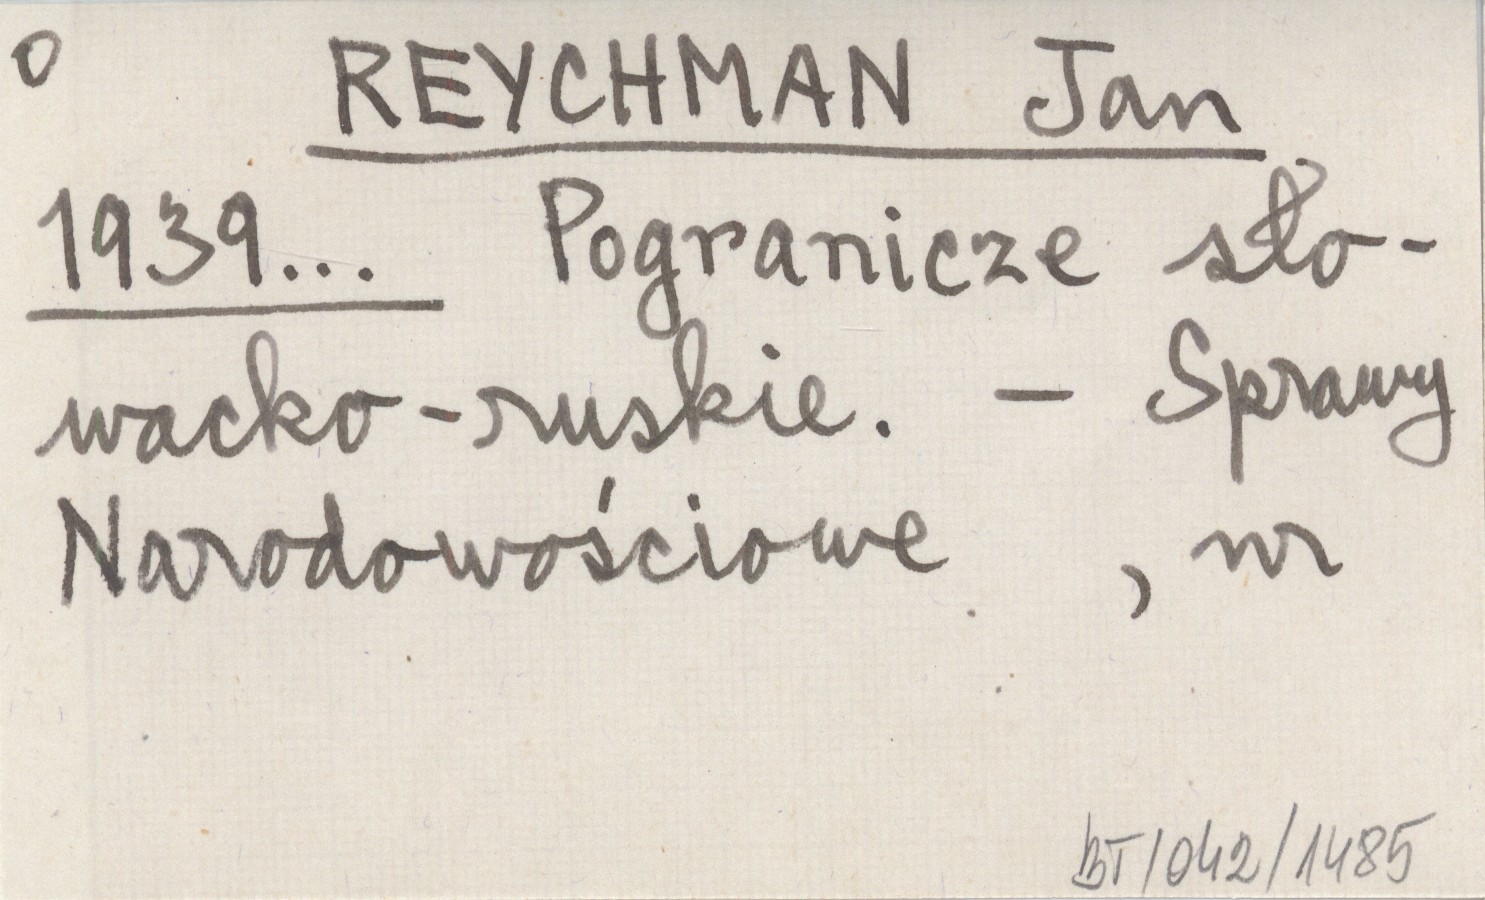 O REYCHMAN Jan
1939... Pogranicze sło-
wacko-ruskie. - Sprawy
Narodowościowe , nr
BT/042/1485